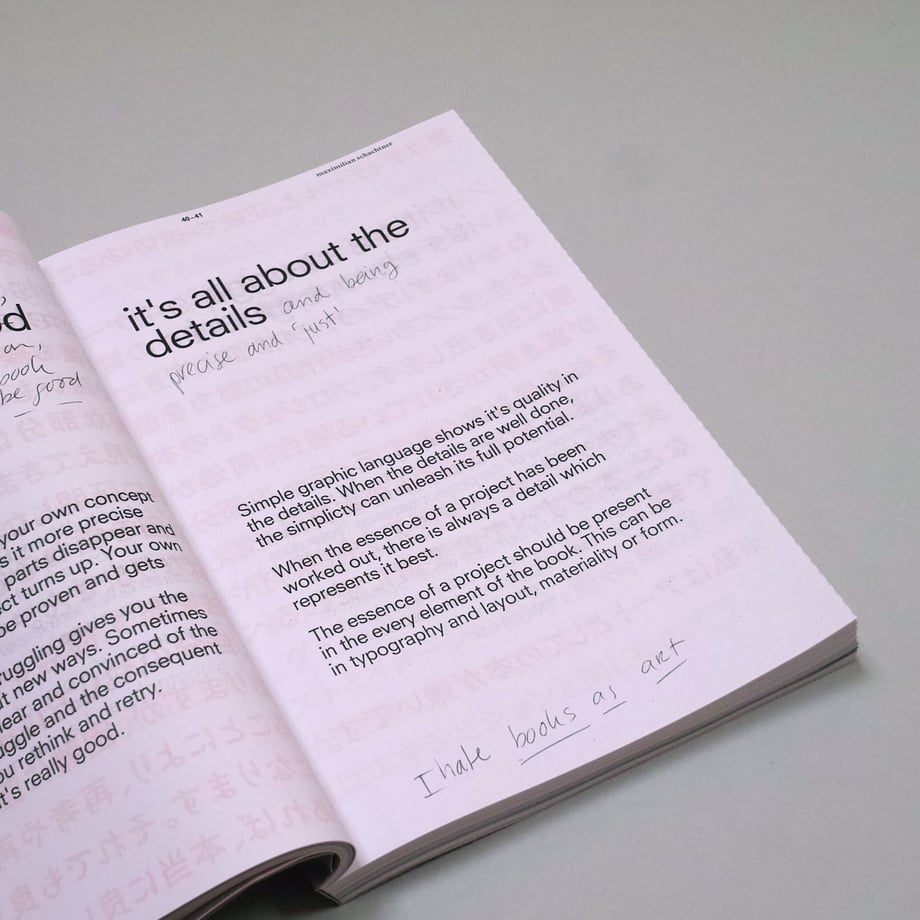 d
on,
book
be good
your own concept
s it more precise
parts disappear and
ct turns up. Your own
be proven and gets
ruggling gives you the
t new ways. Sometimes
lear and convinced of the
uggle and the consequent
ou rethink and retry.
t's really good.
40–41
maximilian schachtner
it's all about the
details and being
precise and 'just'
Simple graphic language shows it's quality in
the details. When the details are well done,
the simplicty can unleash its full potential.
When the essence of a project has been
worked out, there is always a detail which
represents it best.
The essence of a project should be present
in the every element of the book. This can be
in typography and layout, materiality or form.
I hate books as art